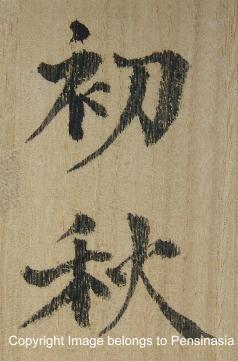 初秋
Copyright Image belongs to Pensinasia